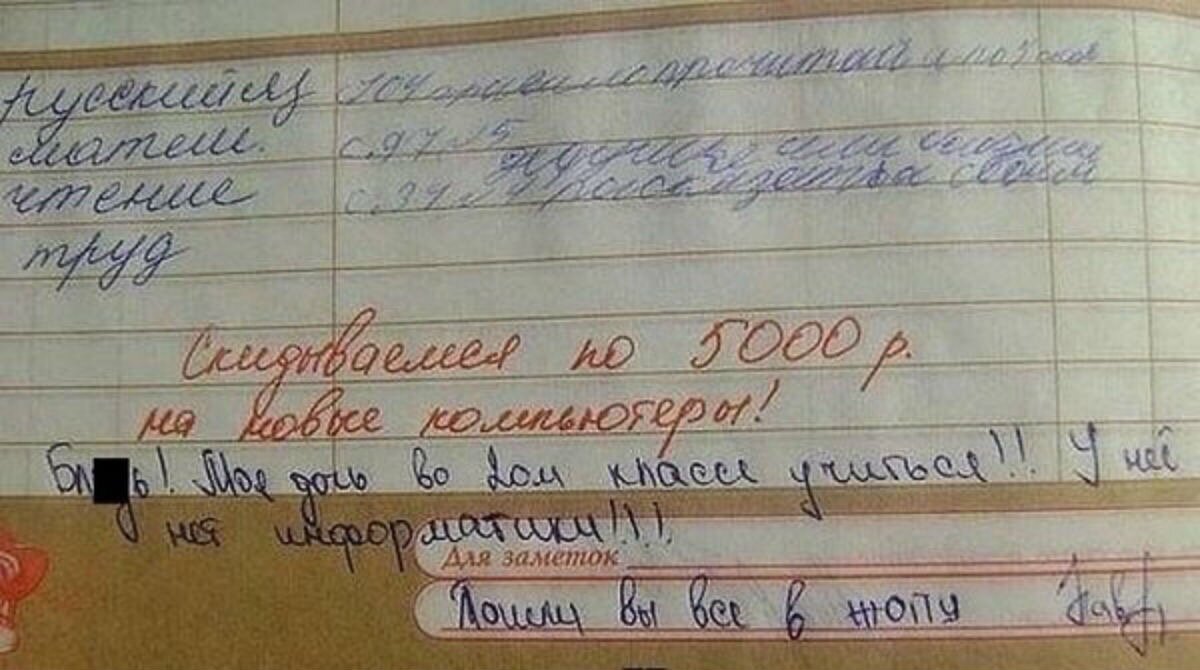 русский яз 104 правило прочитай и
матем. с. 97 № 5
чтение с. 34
труд
Скидываемся по 5000 р.
на новые компьютеры!
Бл ь! Моя дочь во 2ом классе учиться!!! У неё
нет информатики!!!!
Для заметок
Пошли вы все в жопу